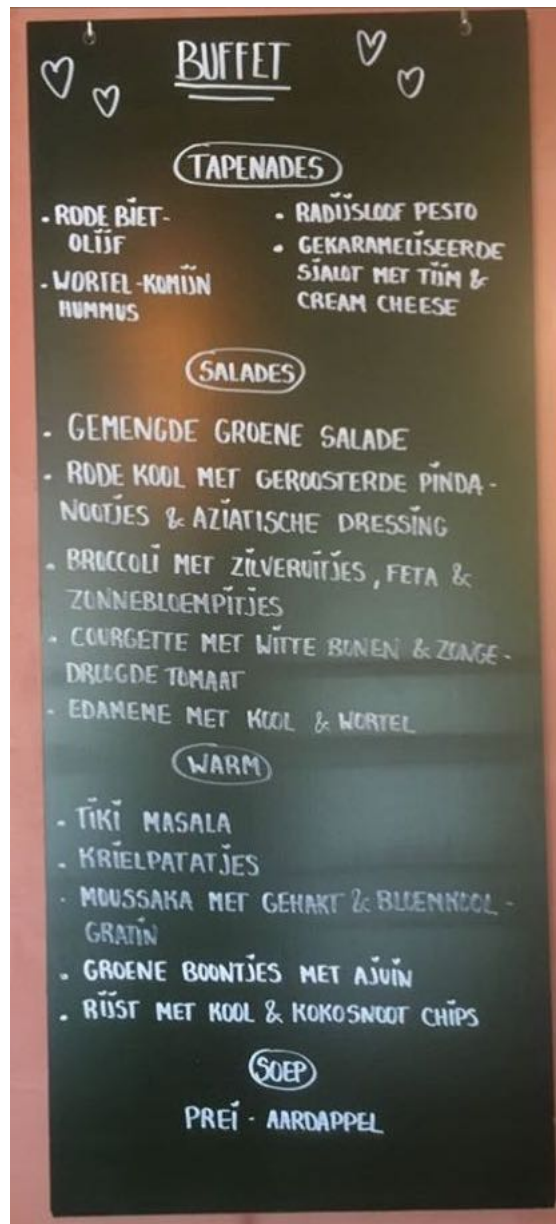 BUFFET
TAPENADES
- RODE BIET-
OLIJF
- WORTEL-KOMIJN
HUMMUS
- RADIJSLOOF PESTO
- GEKARAMELISEERDE
SJALOT MET TIJM &
CREAM CHEESE
SALADES
- GEMENGDE GROENE SALADE
- RODE KOOL MET GEROOSTERDE PINDA-
NOOTJES & AZIATISCHE DRESSING
- BROCCOLI MET ZILVERUITJES, FETA &
ZONNEBLOEMPITJES
- COURGETTE MET WITTE BONEN & ZONGE-
DROOGDE TOMAAT
- EDAMEME MET KOOL & WORTEL
WARM
- TIKI MASALA
- KRIELPATATJES
- MOUSSAKA MET GEHAKT & BLOEMKOOL-
GRATIN
- GROENE BOONTJES MET AJUIN
- RIJST MET KOOL & KOKOSNOOT CHIPS
SOEP
PREI - AARDAPPEL